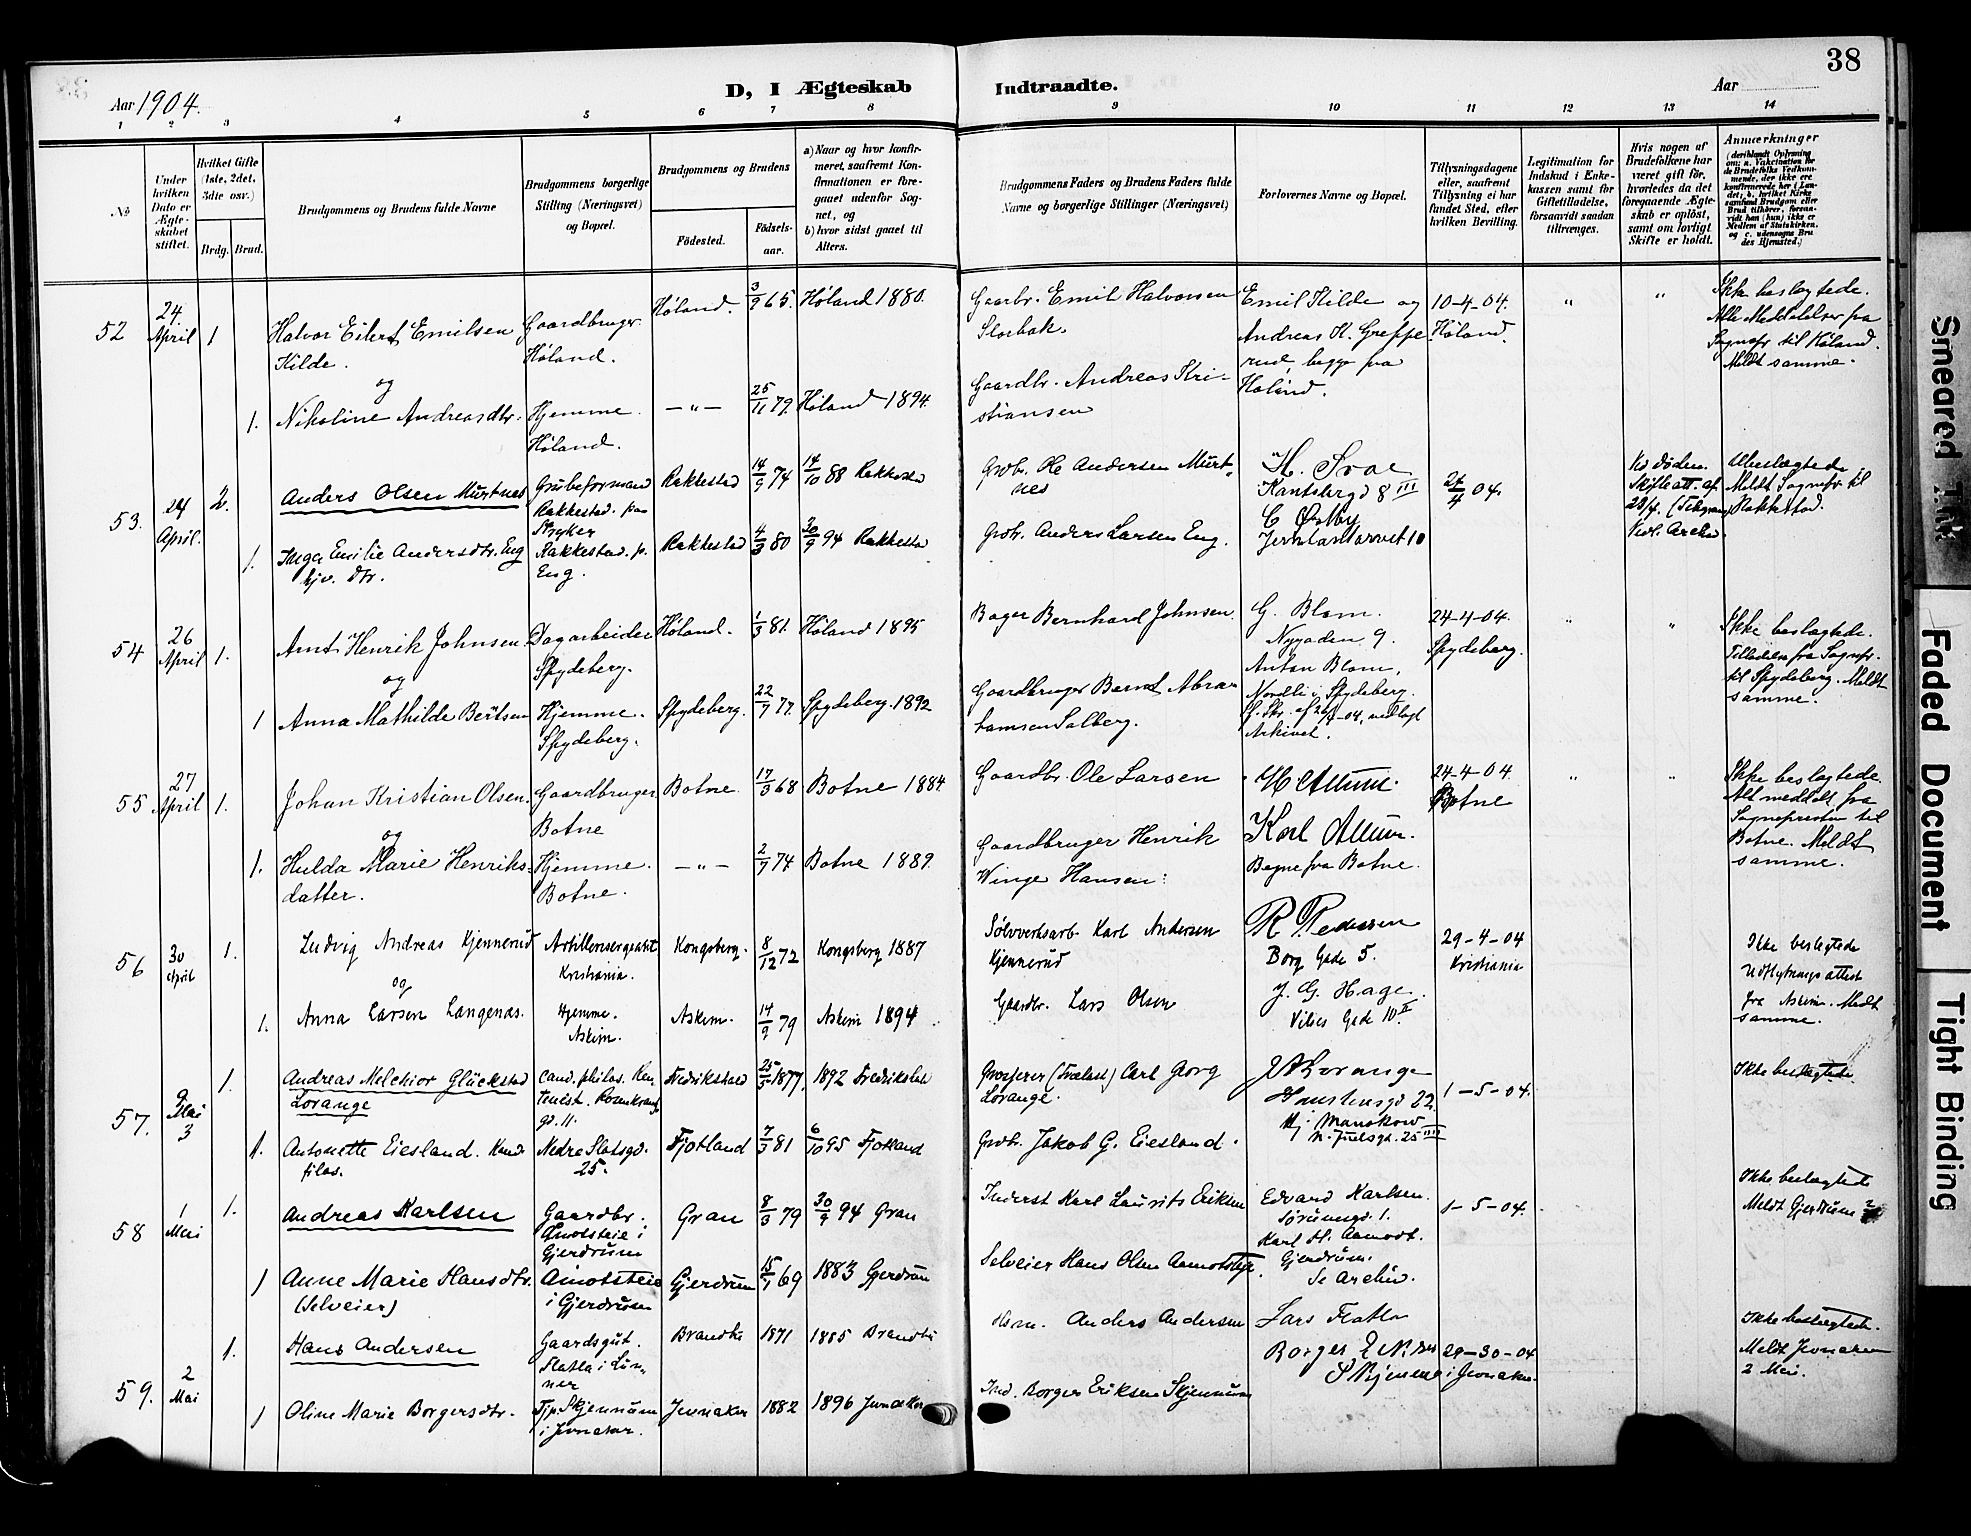 38
Aar 1904.
D, I Ægteskab Indtraadte.
Aar
1 2 3 4 5 6 7 8 9 10 11 12 13 14
No
Under hvilken Dato er Ægteskabet stiftet.
Hvilket Gifte (1ste, 2det, 3dte osv.)
Brdg. Brud.
Brudgommens og Brudens fulde Navne
Brudgommens borgerlige Stilling (Næringsvei) og Bopæl.
Brudgommens og Brudens
Fødested.
Fødselsaar.
a) Naar og hvor konfirmeret, saafremt Konfirmationen er foregaaet udenfor Sognet, og
b) hvor sidst gaaet til Alters.
Brudgommens Faders og Brudens Faders fulde Navne og borgerlige Stillinger (Næringsvei)
Forlovernes Navne og Bopæl.
Tillysningsdagene eller, saafremt Tillysning ei har fundet Sted, efter hvilken Bevilling.
Legitimation for Indskud i Enkekassen samt for Giftetilladelse, forsaavidt saadan tiltrænges.
Hvis nogen af Brudefolkene har været gift før, hvorledes da det foregaaende Ægteskab er opløst, samt om lovligt Skifte er holdt.
Anmærkninger
(deriblandt Oplysning om: a. Vakcination for de Brudefolks Vedkommende, der ikke ere konfirmerede her i Landet; b. hvilket Kirkesamfund Brudgom eller Brud tilhører, forsaavidt han (hun) ikke er Medlem af Statskirken, og c. udensogns Brudes Hjemsted.)
52 24 April 1 Halvor Eilert Emilsen Kilde. Gaardbruger Høland. Høland. 3/9 65. Høland 1880. Gaarbr. Emil Halvorsen Slorbak. Emil Kilde og Andreas K. Grepperud, begge fra Høland. 10-4-04. Høland. " " Ikke beslægtede. Alle Meddelelser fra Sognepr til Høland. Meldt samme.
og
1. Nikoline Andreasdtr. Hjemme. Høland. —"— 25/11 79. Høland 1894. Gaardbr. Andreas Kristiansen
53. 24 April. 2. Anders Olsen Murtnes Grubeformand Rakkestad. Rakkestad 14/9 74 14/10 88 Rakkesta Grdbr. Ole Andersen Murtnes H. Svae Kantsbergd 8 III C Østby Jernbanetorvet 10 24/4 04. Ved døden. Skifteatt. af 23/4. Vedl. Archiv. Ubeslægtede Meldt Sognepr til Rakkestad.
1. Inga Emilie Andersdtr. Eng hjv. dtr. Stryker Rakkestad. p. Eng. Rakkestad 4/3 80 30/9 94 Rakkesta Grdbr. Anders Larsen Eng.
54 26 April 1. Arnt Henrik Johnsen Dagarbeider Spydeberg. Høland. 1/3 81. Høland 1895 Bager Bernhard Johnsen. G. Blom. Nygaden 9. Anton Blom, Nordli i Spydeberg. 24-4-04. Spydeberg. " " Ikke beslægtede. Tilladelse fra Sognepr. til Spydeberg. Meldt samme.
og
1 Anna Mathilde Bertsen Hjemme. Spydeberg. Spydeberg. 22/7 77. Spydeberg. 1892 Gaardbruger Bernt Abrahamsen Solberg. Arkivet.
55 27 April 1. Johan Kristian Olsen. Gaardbruger Botne Botne. 17/3 68 Botne 1884 Gaardbr. Ole Larsen H Allum. Karl Allum. Begge fra Botne. 24-4-04. Botne " " Ikke beslægtede. Alt meddelt fra Sognepresten til Botne. Meldt samme.
og
1. Hulda Marie Henriksdatter. Hjemme. Botne. —"— 2/7 74 Botne 1889. Gaardbruger Henrik Winge Hansen.
56 30 April 1. Ludvig Andreas Kjennerud Artillerisergeant Kristiania. Kongsberg. 8/12 72 Kongsberg 1887 Sølvverksarb. Karl Andersen Kjennerud R Pedersen Borg Gade 5. J. G. Hage. Vibes Gade 10 II 29-4-04 Kristiania Ikke beslegtede Udflytningsattest fra Askim. Meldt samme.
og
1. Anna Larsen Langenæs. Hjemme. Askim. Askim. 14/9 79 Askim 1894 Gaardbr. Lars Olsen
57. Mai 3 1. Andreas Melchior Glückstad Lorange Cand. philos. Rosenkrantzgd. 11. Fredrikstad 25/5 1877. 1892 Fredrikstad Grosserer (Trælast) Carl Georg Lorange. J Lorange 1-5-04. Ikke beslægtede
1. Antonette Eiesland. Kand. filos. Nedre Slotsgd. 25. Fjotland 7/3 81 6/10 95 Fjotland Grdbr. Jakob G. Eiesland.
58 1 Mai 1. Andreas Karlsen Gaardbr. Aamotsteie i Gjerdrum Gran 8/3 79 30/9 94 Gran Inderst Karl Laurits Eriksen Edvard Karlsen. Sørumsgd. 1. Karl H. Aamodt. Gjerdrum. Se Archiv. 1-5-04. Ikke beslægtede Meldt Gjerdrum
1 Anne Marie Hansdtr. (Selveier) Amotsteie i Gjerdrum Gjerdrum 15/1 69 1883 Gjerdrum Selveier Hans Olsen Aamotsteje.
59. 2 Mai 1. Hans Andersen Gaardsgut. Flatla i Lunner Brandbu 1871 1885 Brandbu Hsm. Anders Andersen Lars Flatla Borger Eriksen Skjennum 29-30-04 i Jevnaker. Ikke beslægtede. Meldt Jevnaker 2 Mai.
1 Oline Marie Borgersdtr. Tjp. Skjennum i Jevnaker. Jevnaker 1882 1896 Jevnaker Ind. Borger Eriksen Skjennum
Smeared Ink
Faded Document
Tight Binding